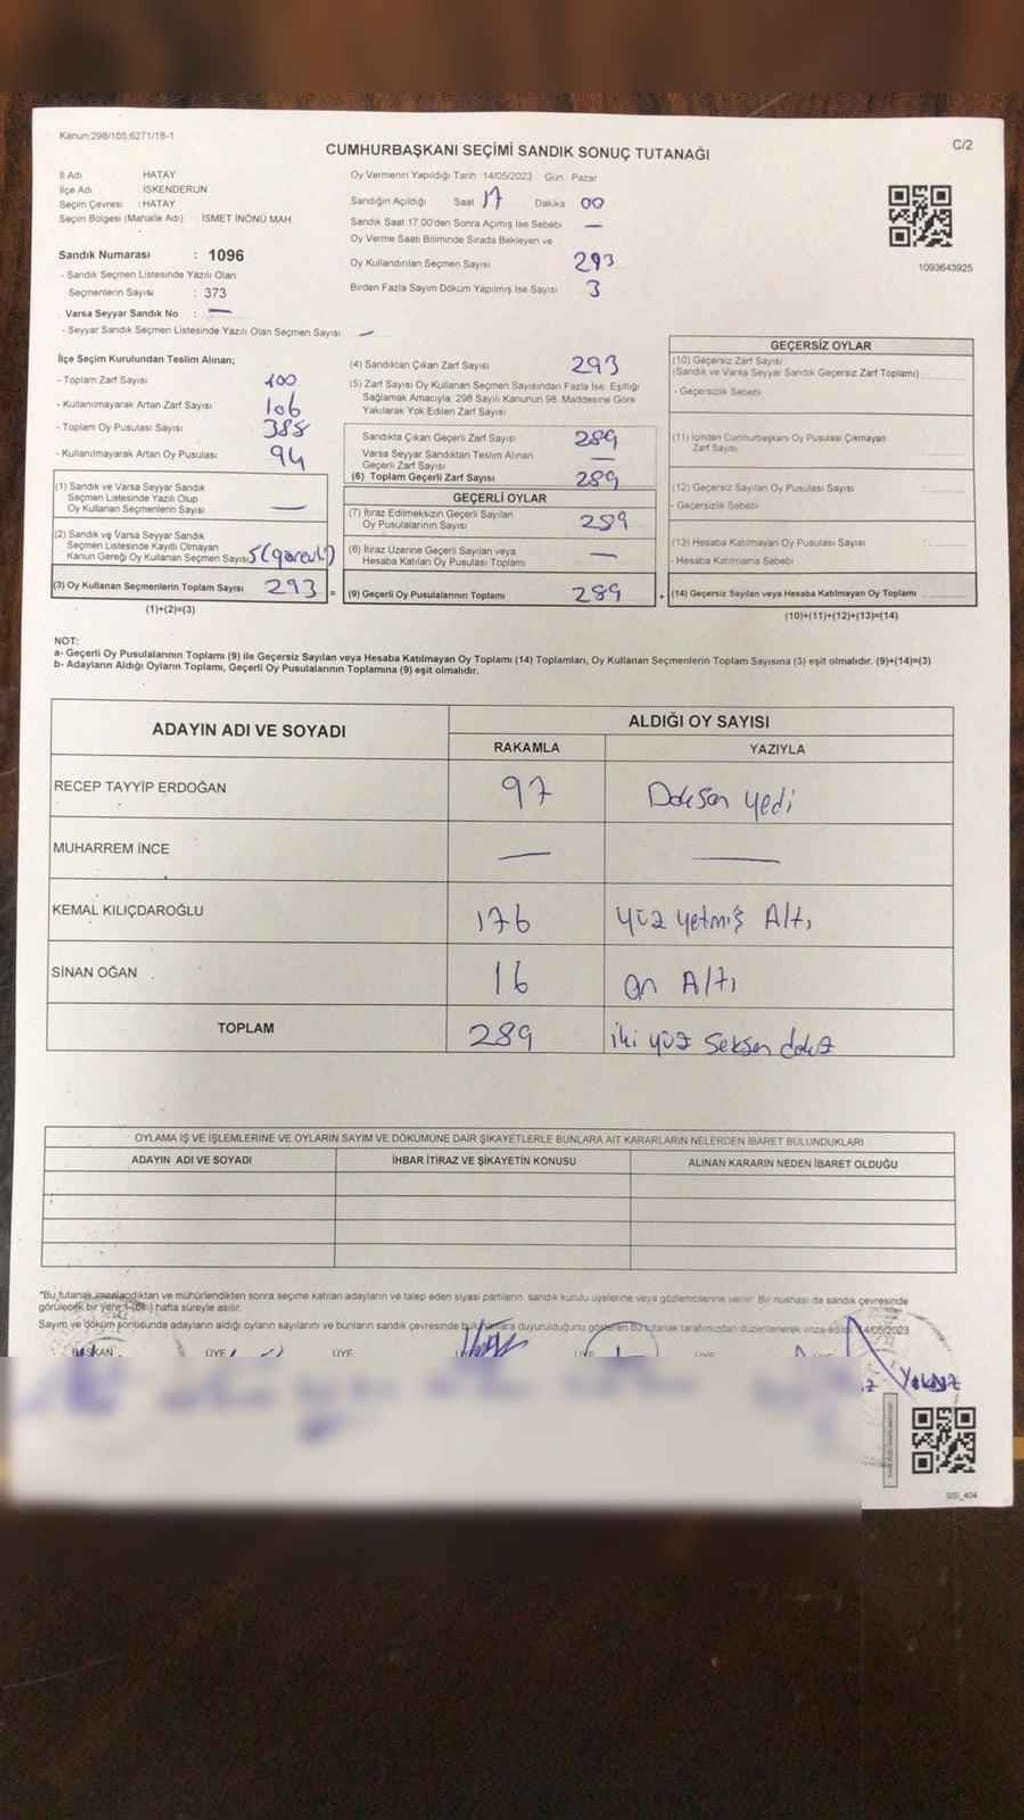 Kanun:298/105;6271/18-1
C/2
CUMHURBAŞKANI SEÇİMİ SANDIK SONUÇ TUTANAĞI
İl Adı HATAY
İlçe Adı : İSKENDERUN
Seçim Çevresi : HATAY
Seçim Bölgesi (Mahalle Adı) İSMET İNÖNÜ MAH
Oy Vermenin Yapıldığı Tarih 14/05/2023 Gün: Pazar
Sandığın Açıldığı Saat 17 Dakika 00
Sandık Saat 17:00'den Sonra Açılmış İse Sebebi —
Oy Verme Saati Bitiminde Sırada Bekleyen ve
Oy Kullandırılan Seçmen Sayısı 293
Birden Fazla Sayım Döküm Yapılmış İse Sayısı 3
1093643925
Sandık Numarası : 1096
- Sandık Seçmen Listesinde Yazılı Olan
Seçmenlerin Sayısı : 373
Varsa Seyyar Sandık No : —
- Seyyar Sandık Seçmen Listesinde Yazılı Olan Seçmen Sayısı —
İlçe Seçim Kurulundan Teslim Alınan;
- Toplam Zarf Sayısı 400
- Kullanılmayarak Artan Zarf Sayısı 106
- Toplam Oy Pusulası Sayısı 388
- Kullanılmayarak Artan Oy Pusulası 94
(1) Sandık ve Varsa Seyyar Sandık
Seçmen Listesinde Yazılı Olup
Oy Kullanan Seçmenlerin Sayısı —
(2) Sandık ve Varsa Seyyar Sandık
Seçmen Listesinde Kayıtlı Olmayan
Kanun Gereği Oy Kullanan Seçmen Sayısı 5
(3) Oy Kullanan Seçmenlerin Toplam Sayısı 293 =
(1)+(2)=(3)
(4) Sandıktan Çıkan Zarf Sayısı 293
(5) Zarf Sayısı Oy Kullanan Seçmen Sayısından Fazla İse; Eşitliği
Sağlamak Amacıyla; 298 Sayılı Kanunun 98. Maddesine Göre
Yakılarak Yok Edilen Zarf Sayısı
Sandıkta Çıkan Geçerli Zarf Sayısı 289
Varsa Seyyar Sandıktan Teslim Alınan
Geçerli Zarf Sayısı —
(6) Toplam Geçerli Zarf Sayısı 289
GEÇERLİ OYLAR
(7) İtiraz Edilmeksizin Geçerli Sayılan
Oy Pusulalarının Sayısı 289
(8) İtiraz Üzerine Geçerli Sayılan veya
Hesaba Katılan Oy Pusulası Toplamı —
(9) Geçerli Oy Pusulalarının Toplamı 289 +
GEÇERSİZ OYLAR
(10) Geçersiz Zarf Sayısı
(Sandık ve Varsa Seyyar Sandık Geçersiz Zarf Toplamı)
- Geçersizlik Sebebi
(11) İçinden Cumhurbaşkanı Oy Pusulası Çıkmayan
Zarf Sayısı
(12) Geçersiz Sayılan Oy Pusulası Sayısı
- Geçersizlik Sebebi
(13) Hesaba Katılmayan Oy Pusulası Sayısı :
- Hesaba Katılmama Sebebi
(14) Geçersiz Sayılan veya Hesaba Katılmayan Oy Toplamı
(10)+(11)+(12)+(13)=(14)
NOT:
a- Geçerli Oy Pusulalarının Toplamı (9) ile Geçersiz Sayılan veya Hesaba Katılmayan Oy Toplamı (14) Toplamları, Oy Kullanan Seçmenlerin Toplam Sayısına (3) eşit olmalıdır. (9)+(14)=(3)
b- Adayların Aldığı Oyların Toplamı, Geçerli Oy Pusulalarının Toplamına (9) eşit olmalıdır.
ADAYIN ADI VE SOYADI
ALDIĞI OY SAYISI
RAKAMLA YAZIYLA
RECEP TAYYİP ERDOĞAN 97 Doksan yedi
MUHARREM İNCE — —
KEMAL KILIÇDAROĞLU 176 yüz yetmiş Altı
SİNAN OĞAN 16 on Altı
TOPLAM 289 iki yüz seksen dokuz
OYLAMA İŞ VE İŞLEMLERİNE VE OYLARIN SAYIM VE DÖKÜMÜNE DAİR ŞİKAYETLERLE BUNLARA AİT KARARLARIN NELERDEN İBARET BULUNDUKLARI
ADAYIN ADI VE SOYADI İHBAR İTİRAZ VE ŞİKAYETİN KONUSU ALINAN KARARIN NEDEN İBARET OLDUĞU
"Bu tutanak imzalandıktan ve mühürlendikten sonra seçime katılan adayların ve talep eden siyasi partilerin, sandık kurulu üyelerine veya gözlemcilerine verilir. Bir nüshası da sandık çevresinde
görülecek bir yere 1 (bir) hafta süreyle asılır.
Sayım ve döküm sonusunda adayların aldığı oyların sayılarını ve bunların sandık çevresinde duyurulduğunu gösteren bu tutanak tarafımızdan düzenlenerek imza edildi 14/05/2023
BAŞKAN ÜYE ÜYE ÜYE ÜYE